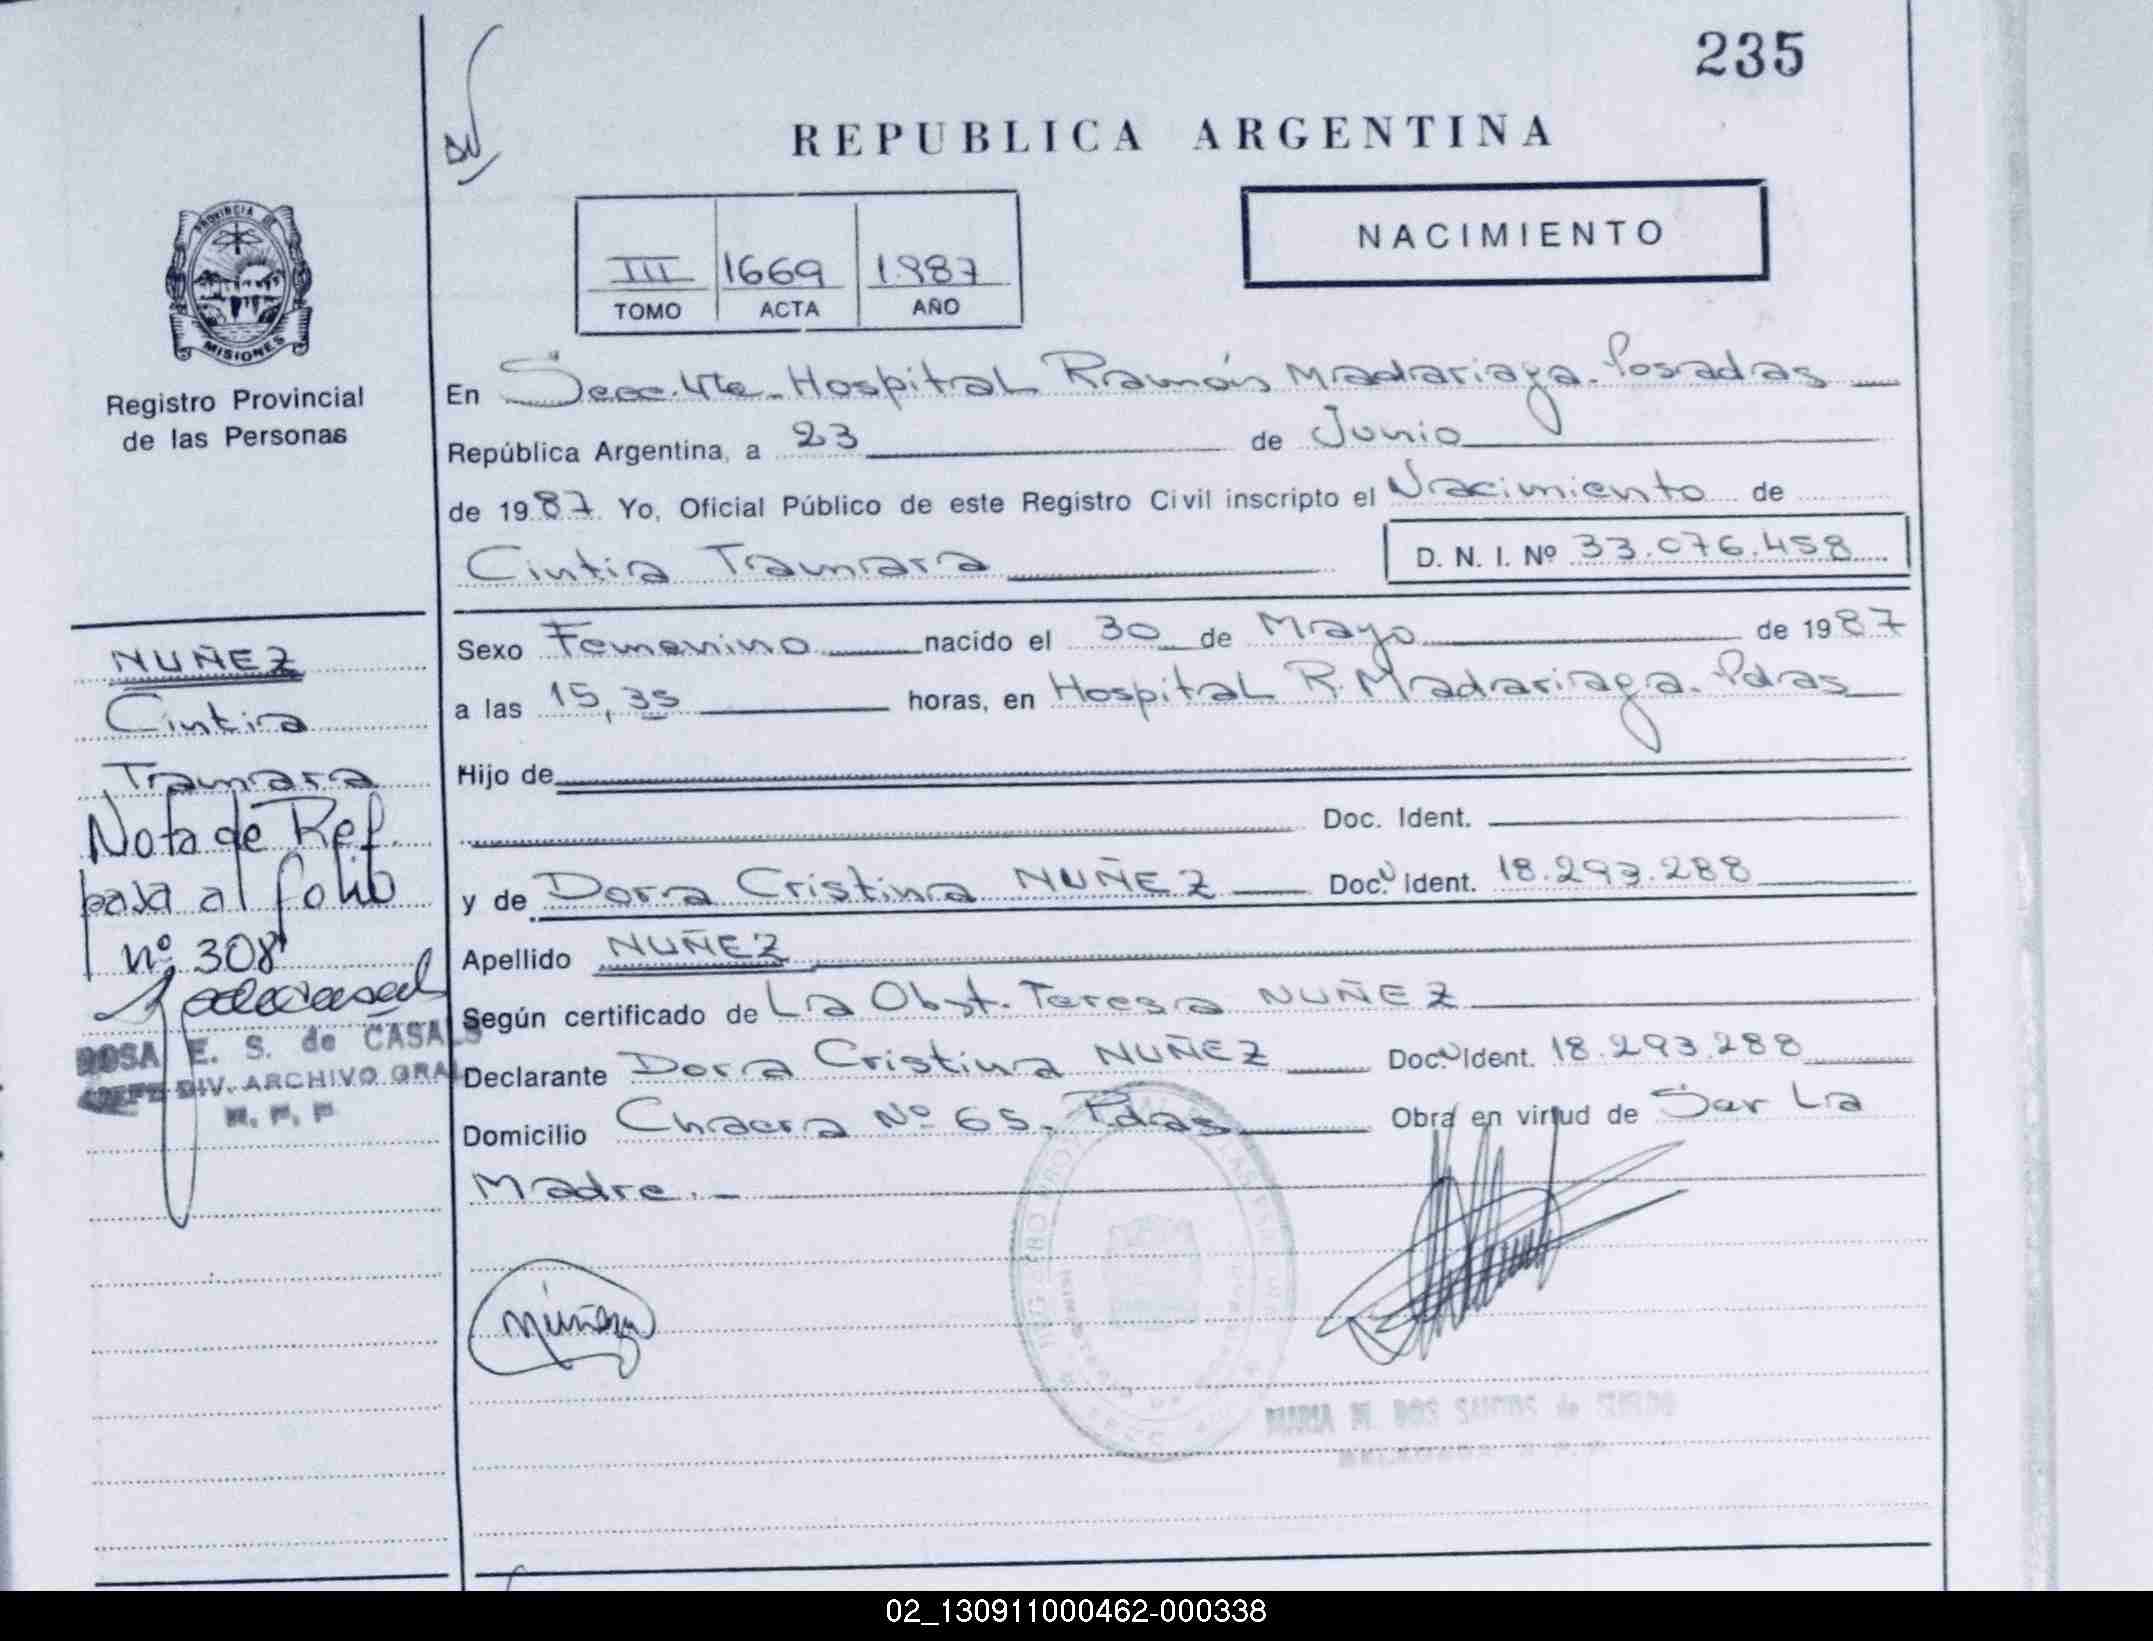 235
REPUBLICA ARGENTINA
NACIMIENTO
III 1669 1987
TOMO ACTA AÑO
PROVINCIA DE
MISIONES
Registro Provincial
de las Personas
En Secc. 4te. Hospital Ramón Madariaga. Posadas
República Argentina, a 23 de Junio
de 1987. Yo, Oficial Público de este Registro Civil inscripto el Nacimiento de
Cintia Tamara D. N. I. Nº 33.076.458
Sexo Femenino nacido el 30 de Mayo de 1987
a las 15,35 horas, en Hospital R. Madariaga. Pdas
Hijo de
Doc. Ident.
y de Dora Cristina NUÑEZ Doc. Ident. 18.293.288
Apellido NUÑEZ
Según certificado de La Obst. Teresa NUÑEZ
Declarante Dora Cristina NUÑEZ Doc. Ident. 18.293.288
Domicilio Chacra Nº 65. Pdas Obra en virtud de Ser La
Madre.-
NUÑEZ
Cintia
Tamara
Nota de Ref.
pasa al folio
nº 308
ROSA E. S. de CASALS
JEFE DIV. ARCHIVO GRAL
R. P. P
Núñez
MARIA M. DOS SANTOS de
02_130911000462-000338